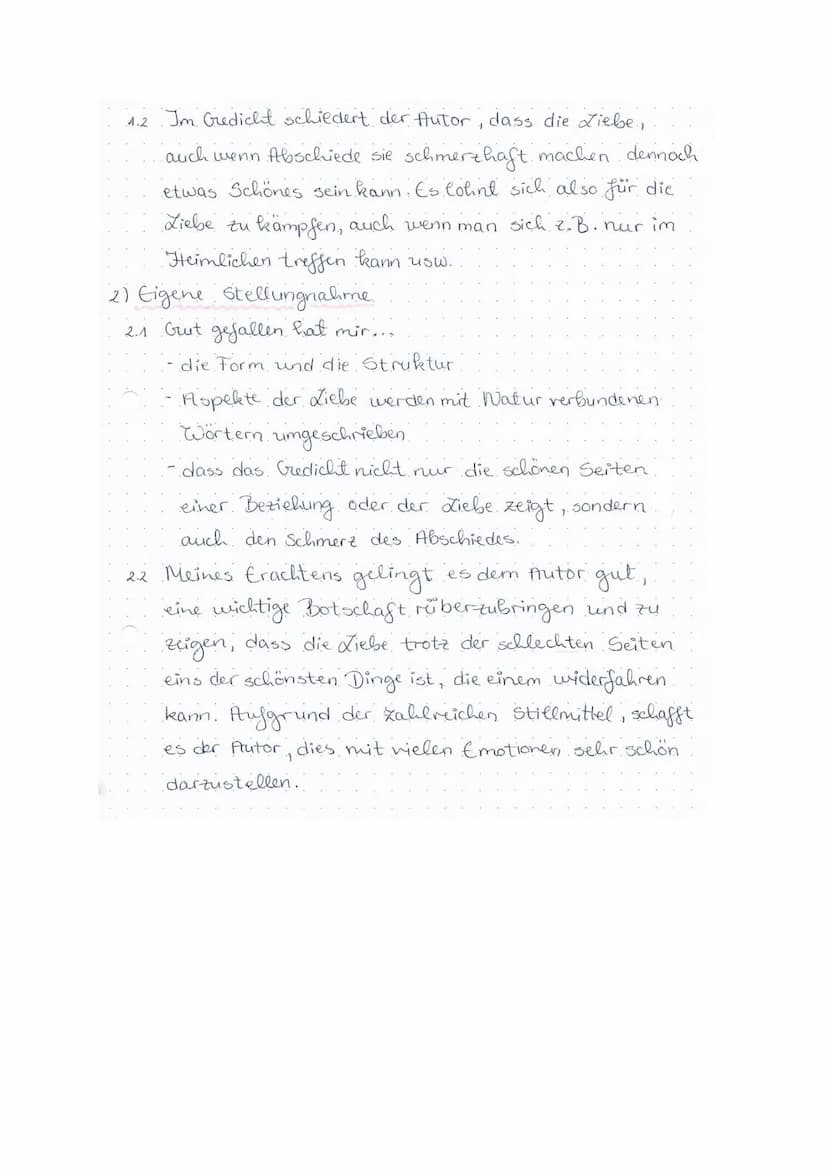 1.2 Im Gedicht schiedert der Autor, dass die Liebe,
auch wenn Abschiede sie schmerzhaft machen dennoch
etwas Schönes sein kann. Es lohnt sich also für die
Liebe zu kämpfen, auch wenn man sich z.B. nur im
Heimlichen treffen kann usw.
2) Eigene Stellungnahme
2.1 Gut gefallen hat mir...
- die Form und die Struktur
- Aspekte der Liebe werden mit Natur verbundenen
Wörtern umgeschrieben
- dass das Gedicht nicht nur die schönen Seiten
einer Beziehung oder der Liebe zeigt, sondern
auch den Schmerz des Abschiedes.
2.2 Meines Erachtens gelingt es dem Autor gut,
eine wichtige Botschaft rüberzubringen und zu
zeigen, dass die Liebe trotz der schlechten Seiten
eins der schönsten Dinge ist, die einem widerfahren
kann. Aufgrund der zahlreichen Stillmittel, schafft
es der Autor, dies mit vielen Emotionen sehr schön
darzustellen.